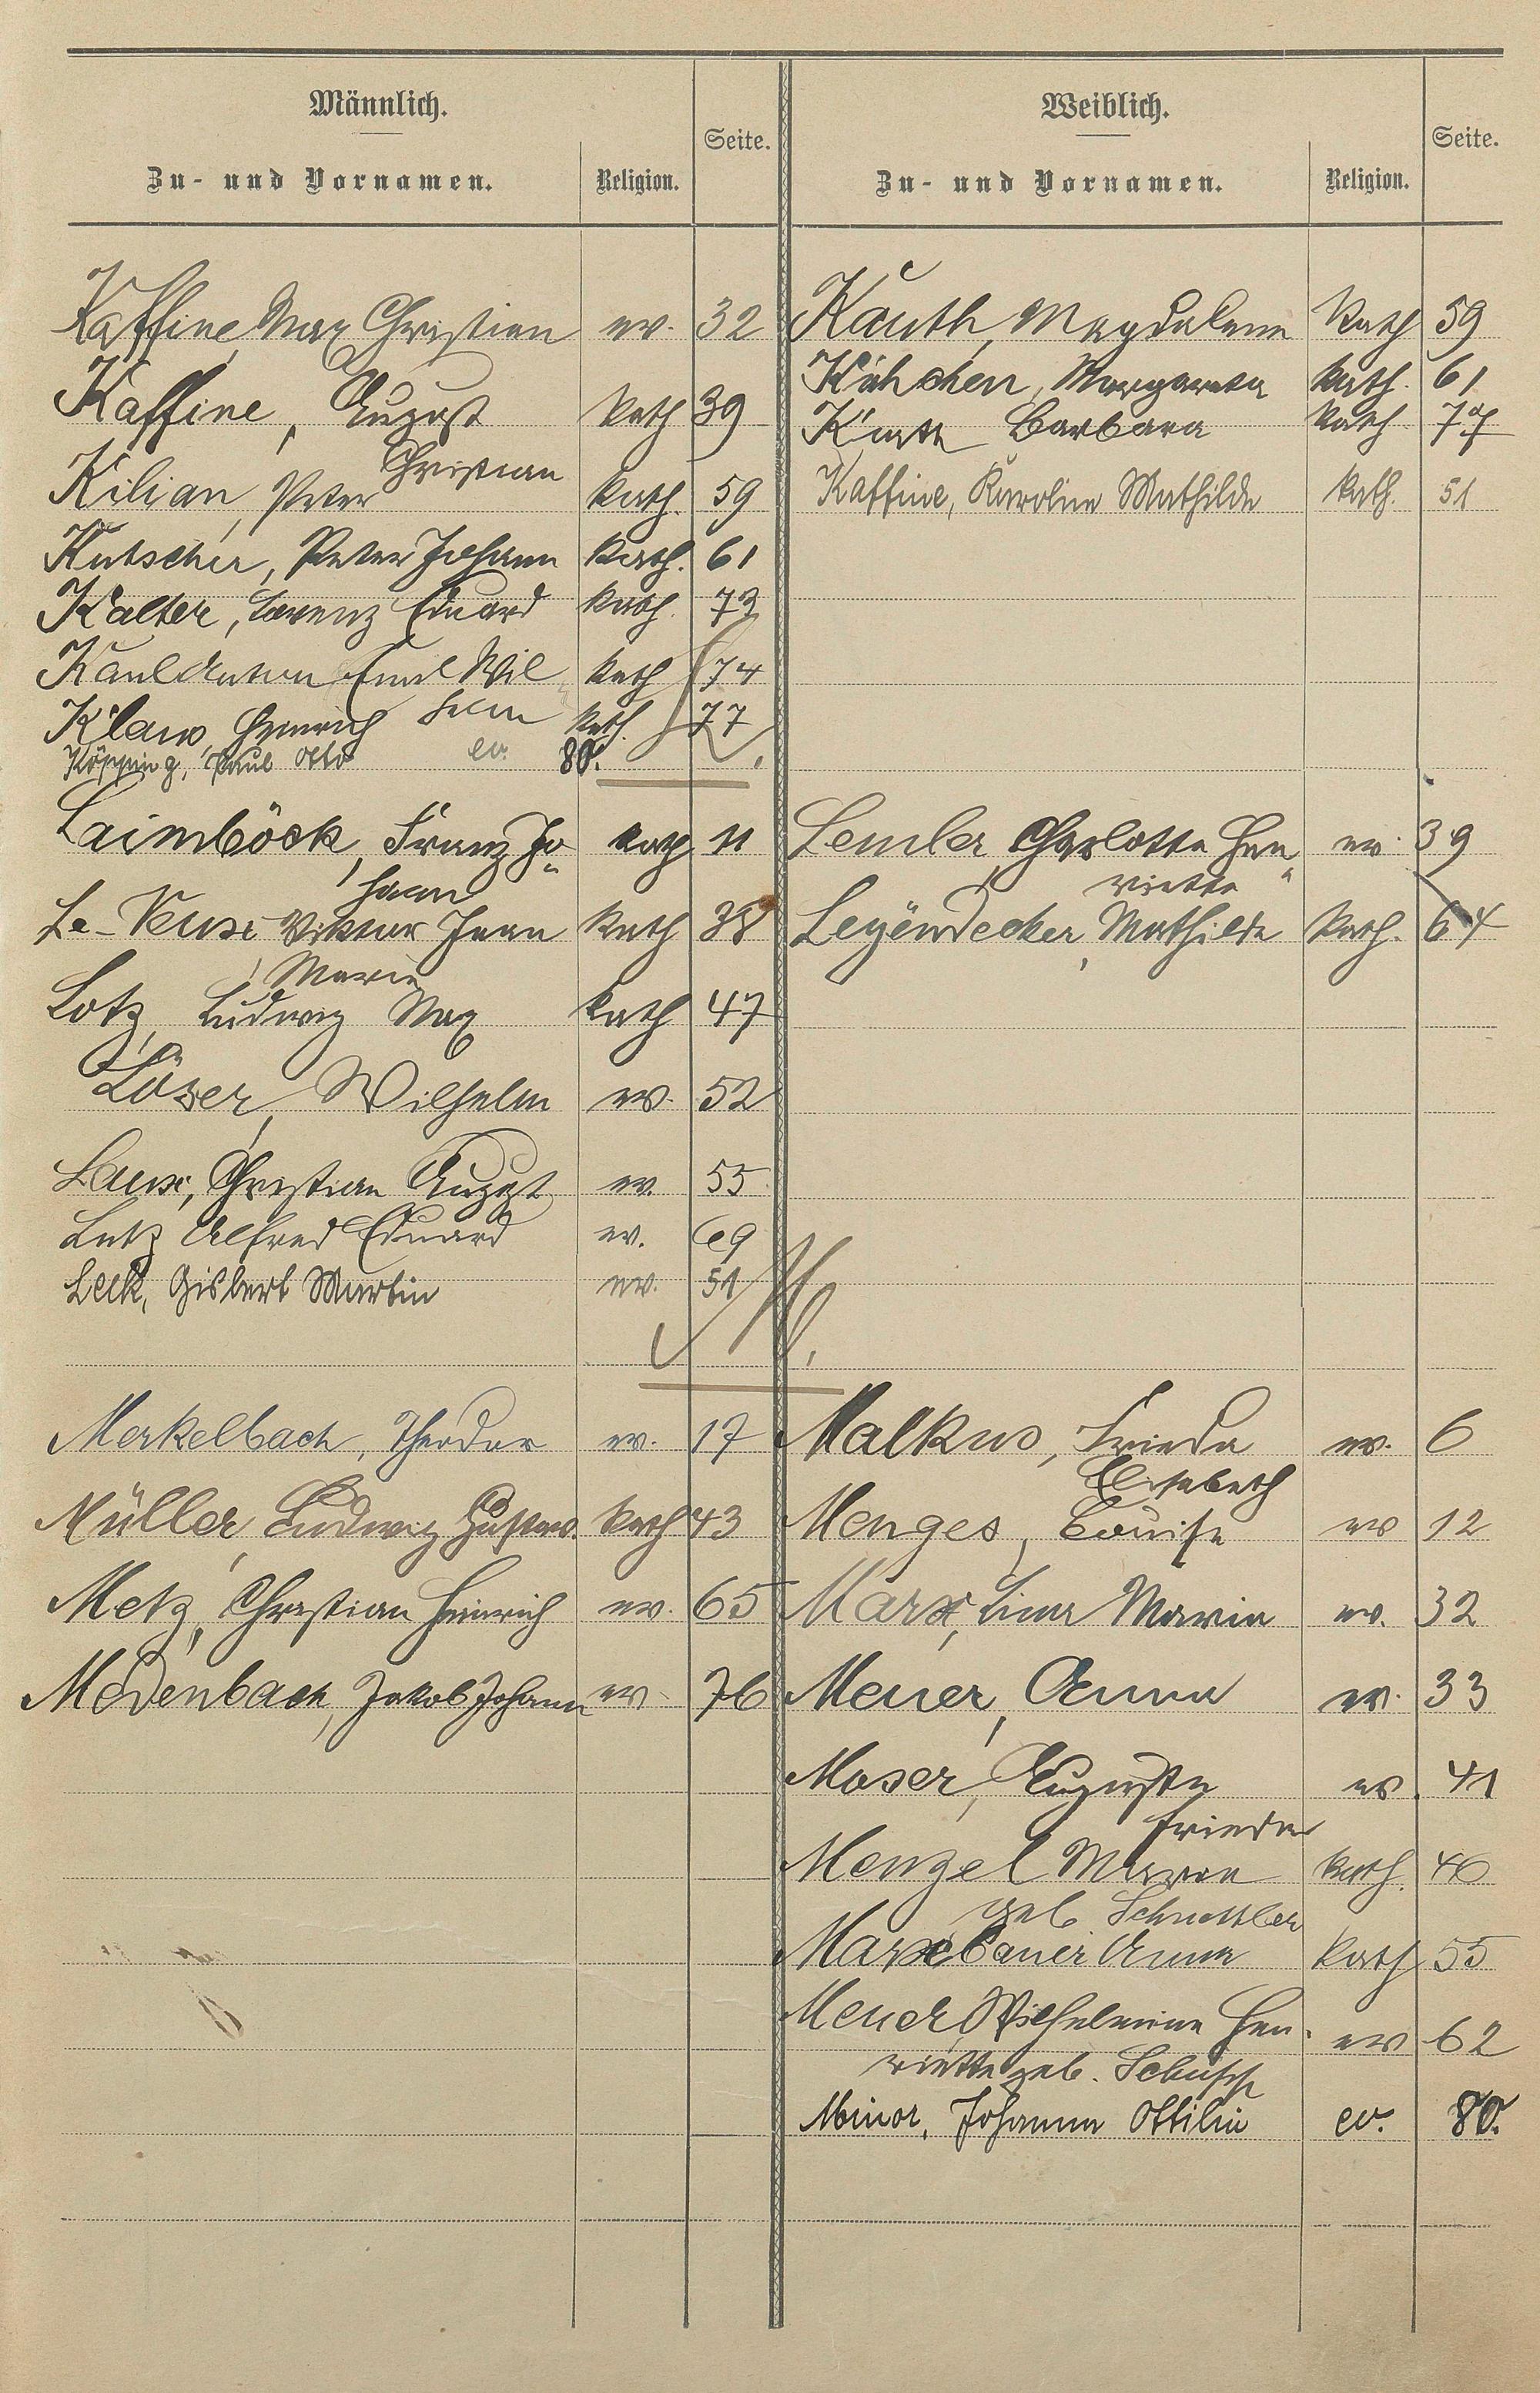 Männlich.
Zu- und Vornamen.
Religion.
Seite.
Kaffine, Max Christian ev. 32
Kaffine, August kath 39
Christian
Kilian, Peter kath. 59
Kutscher, Peter Johann kath. 61
Kalter, Lorenz Eduard kath. 73
Kaul Anton Emil Wil kath 74
helm
Klaus, Heinrich kath. 77
Köpping, Paul Otto ev. 80.
L.
Laimböck, Franz Jo„ kath 11
hann
Le-Veux Viktor Jean kath 38
Marie
Lotz, Ludwig Max kath 47
Löser, Wilhelm ev. 52
Laux, Christian August ev. 55
Lutz Alfred Eduard ev. 69
Leck, Gisbert Martin ev. 51
M.
Merkelbach, Theodor ev. 17
Müller, Ludwig Gustav. kath 43
Metz, Christian Heinrich ev. 65
Medenbach, Jakob Johann ev 76
Weiblich.
Zu- und Vornamen.
Religion.
Seite.
Kauth, Magdalena kath 59
Kühchen, Margareta kath. 61
Barbara kath 77
Kaffine, Karoline Mathilde kath. 51
Lemler, Charlotte Hen„ ev. 39
riette
Leyendecker, Mathilde kath. 64
Malkus, Frieda ev. 6
Elisabeth
Menges, Louise ev 12
Marx, Lina Maria ev. 32
Meuer, Anna ev. 33
Moser, Auguste ev. 41
Frieda
Menzel Maria kath. 46
geb.
Marxbauer Anna kath 55
Meuer, Wilhelmine Hen. ev 62
riette geb. Schupp
Minor, Johanna Ottilie ev. 80.